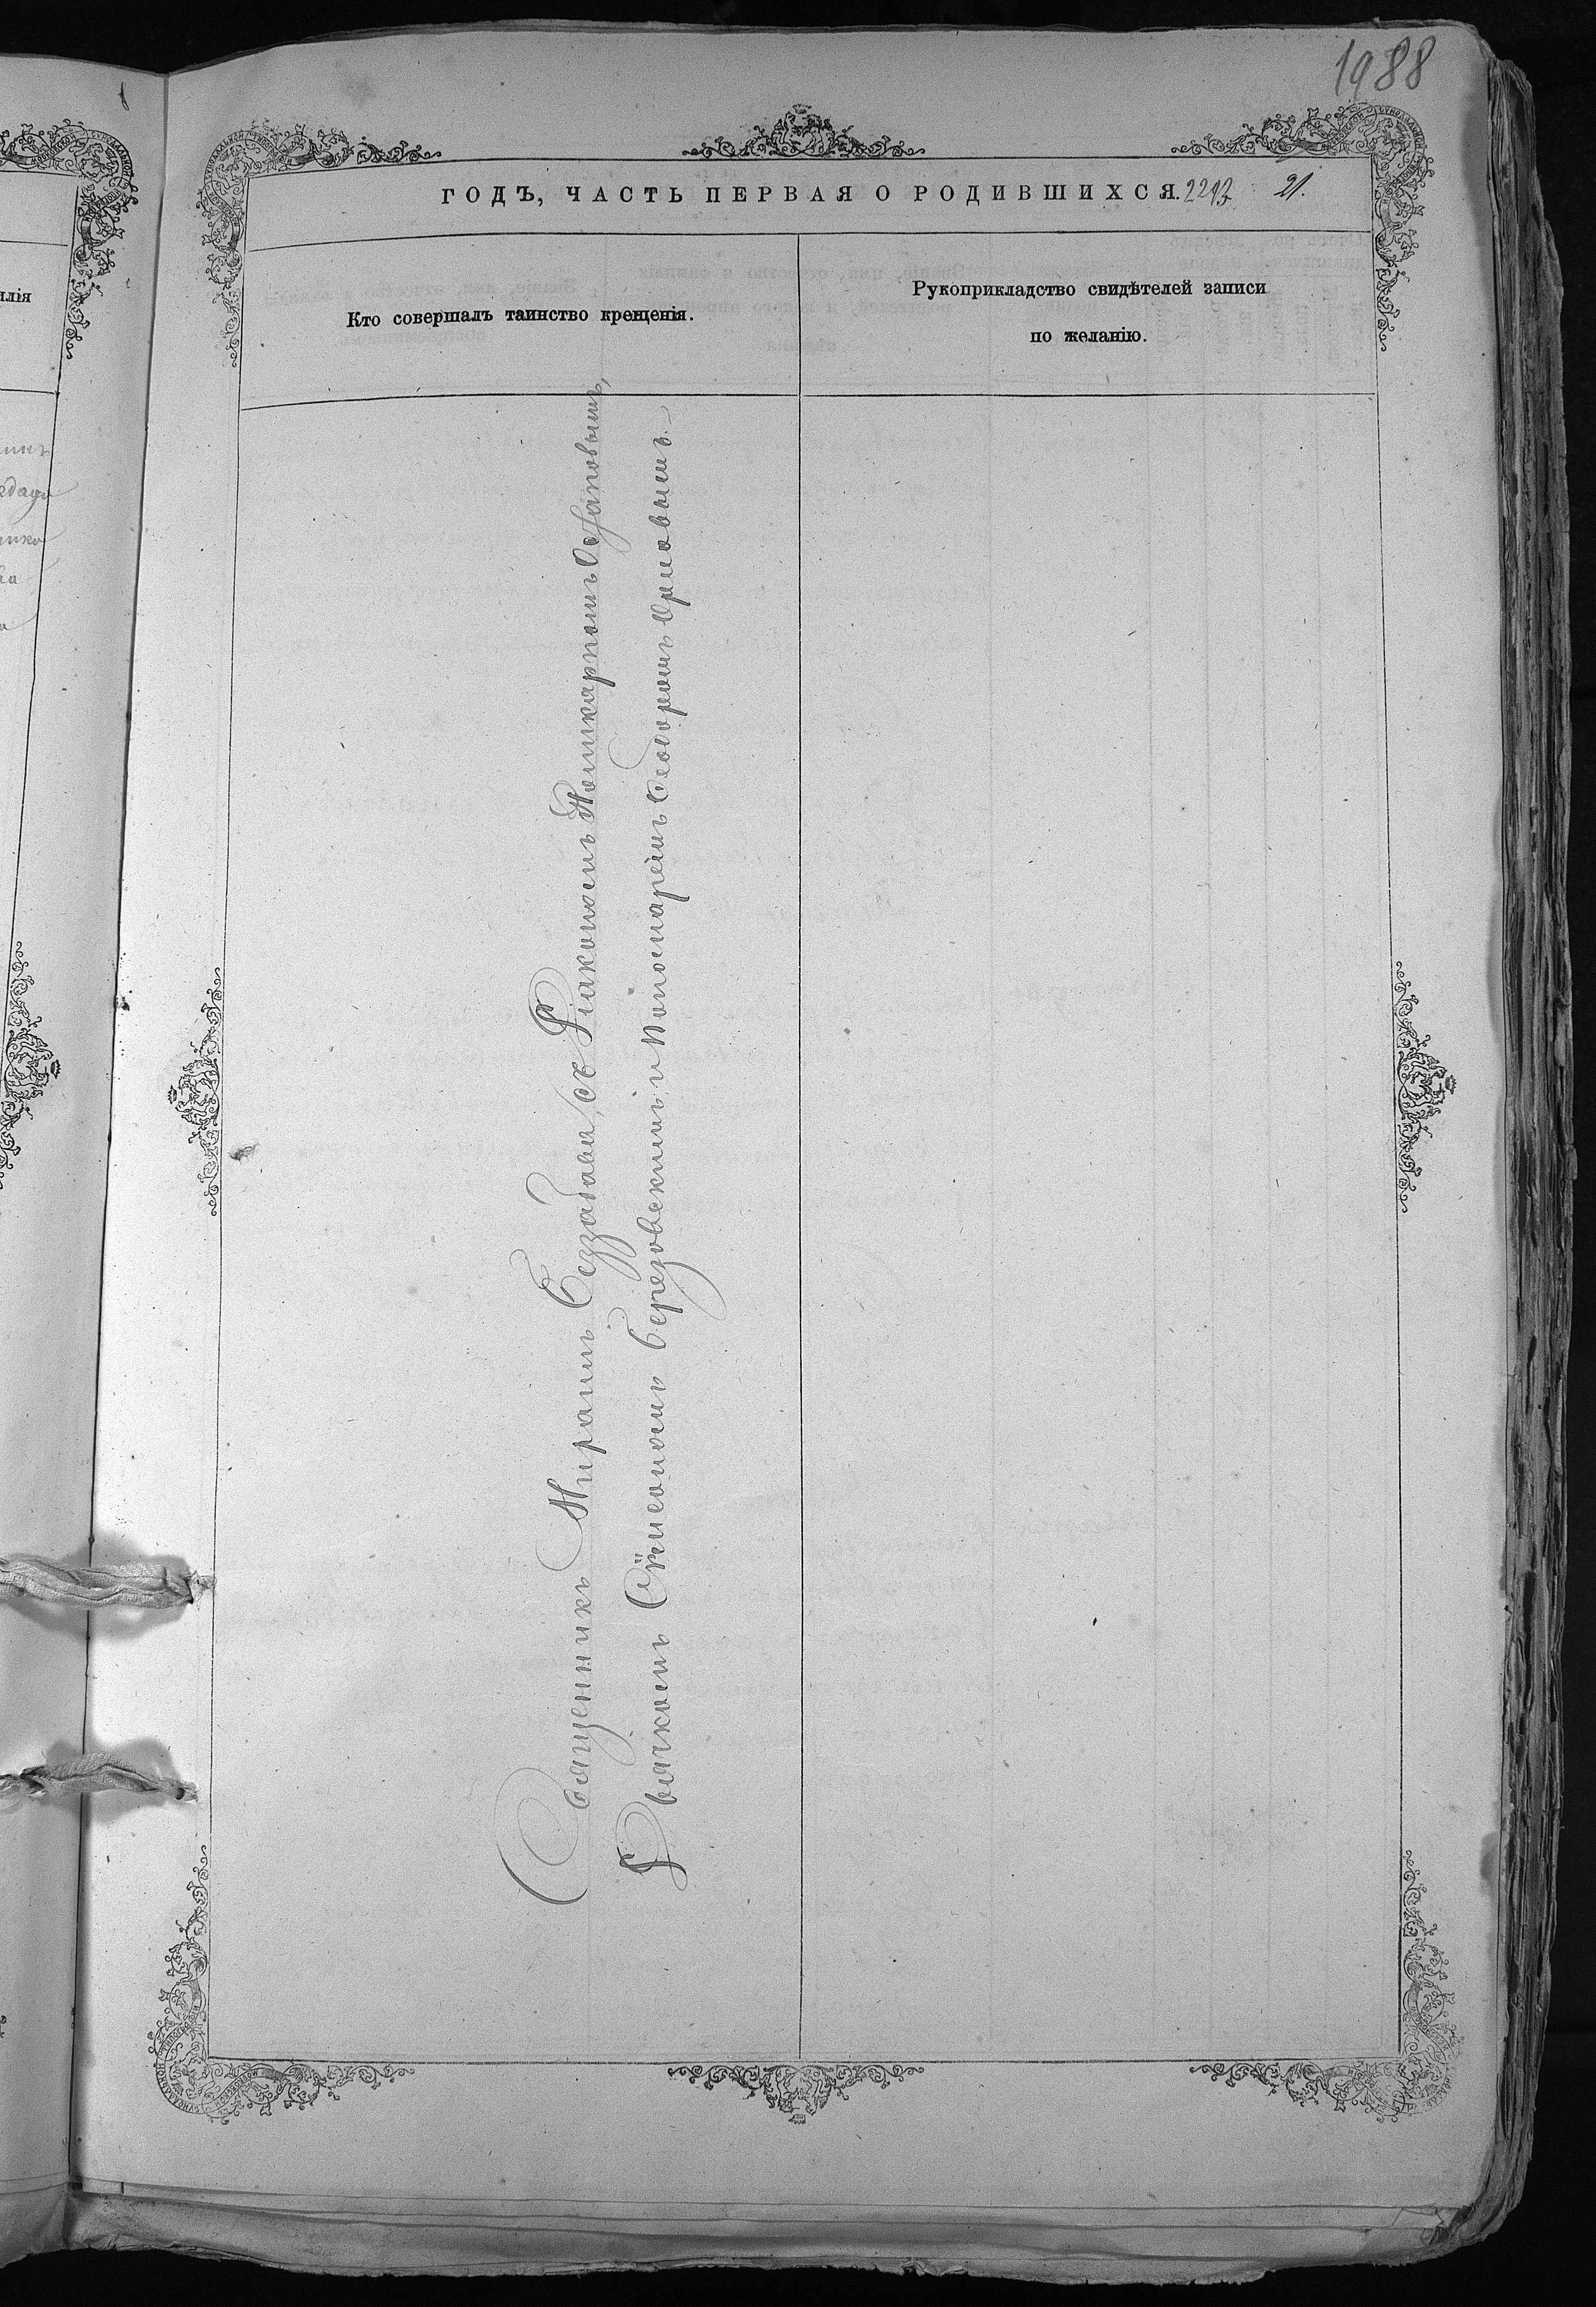 1988
ГОДЪ, ЧАСТЬ ПЕРВАЯ О РОДИВШИХСЯ. 2293 21.
Кто совершалъ таинство крещенія.
Рукоприкладство свидѣтелей записи
по желанію.
Священникъ Беззабава, съ Діакономъ Поликарпомъ Остаповымъ,
Дьячкомъ Сѵмеономъ Березовскимъ и Пономаремъ Ѳеодоромъ Орловымъ.
илія